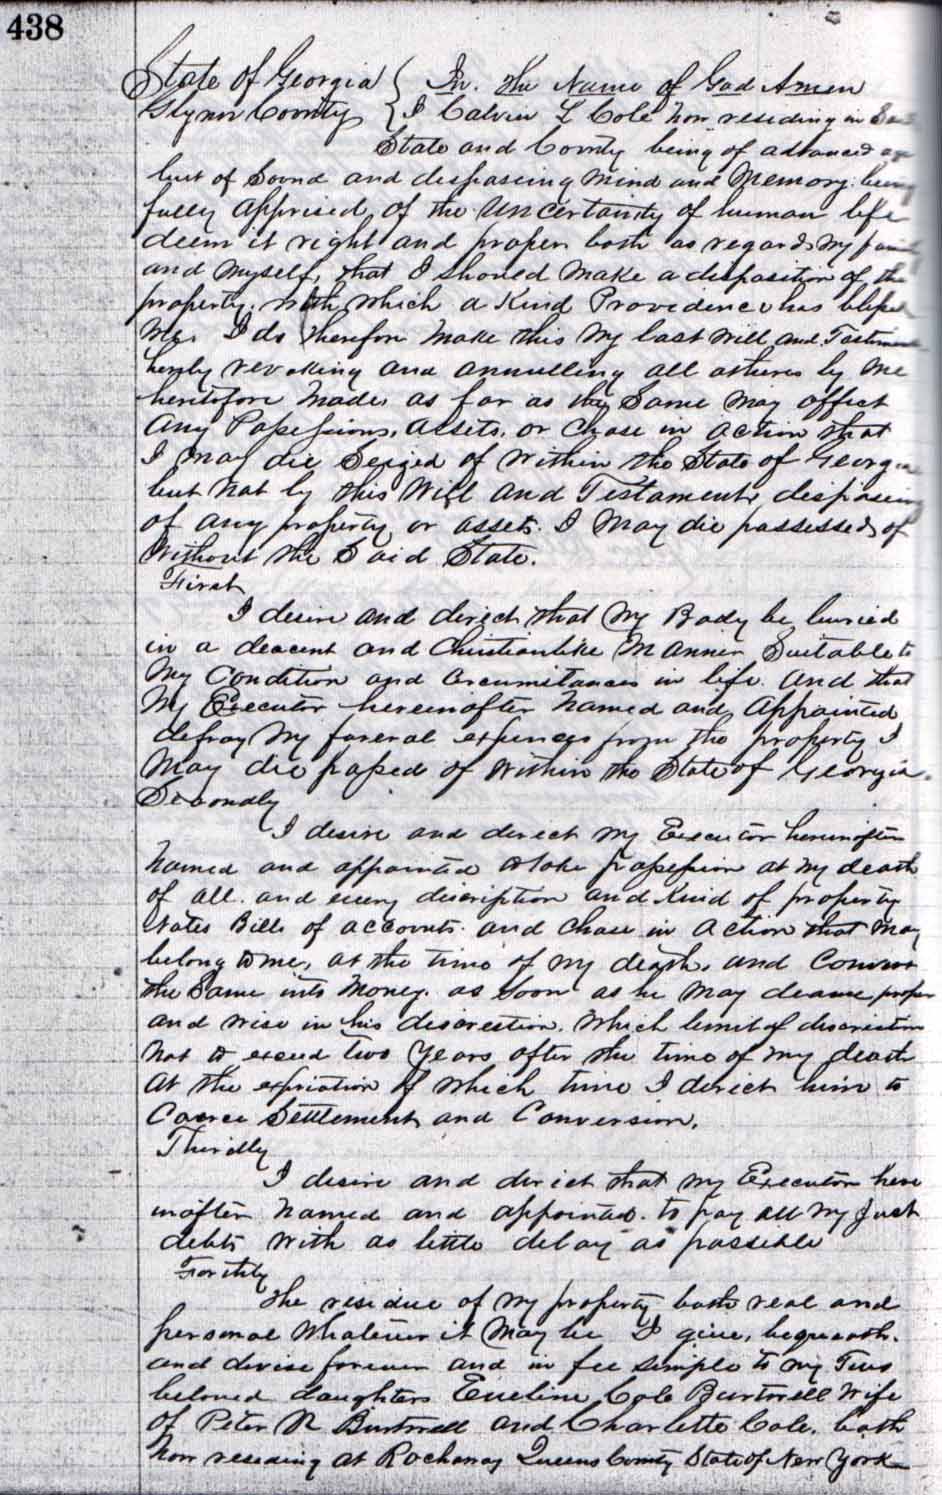 438
State of Georgia { In the Name of God Amen
Glynn County { I Calvin L Cole Now residing in Said
State and County being of advanced age
but of Sound and disposeing Mind and Memory. being
fully apprised of the Uncertainty of human life
deem it right and proper both as regards my family
and Myself, that I should Make a disposition of the
property, with which a Kind Providence has blessed
Me. I do therefore Make this My last will and Testament
hereby revoking and annulling all others by Me
heretofore Made, as far as they Same May affect
Any Possessions, assets, or Chose in action that
I may die Seized of within the State of Georgia
but Not by this Will and Testament, disposeing
of any property or assets. I May die possessed of
Without the Said State.
First
I desire and direct that My Body be buried
in a deacent and Christianlike Manner Suitable to
My Condition and Circumstances in life. And that
My Executor hereinafter Named and Appointed
defray My funeral expences from the property I
May die possed of within the State of Georgia.
Secondly
I desire and direct My Executor hereinafter
Named and appointed to take possession at My death
of all. and every discription and Kind of property
Notes Bills of accounts. and Chose in Action that May
belong to me, at the time of My death, and Convert
the Same into Money. as Soon as he May deame proper
and wise in his discrestion. Which limit of discrestion
Not to exceed Two Years after the time of my death
At the expiration of which time I direct him to
Coerce Settlement and Conversion.
Thirdly
I desire and direct that My Executor here
inafter Named and appointed. to pay all My Just
debts with as little delay as possible
Forthly
The residue of My property both real and
personal Whatever it May be I give, bequeath.
and devise forever and in fee Simple to my Two
beloved daughters Eveline Cole Burtnell Wife
of Peter N Burtnell and Charlotte Cole, both
Now residing at Rockaway Queens County State of New York